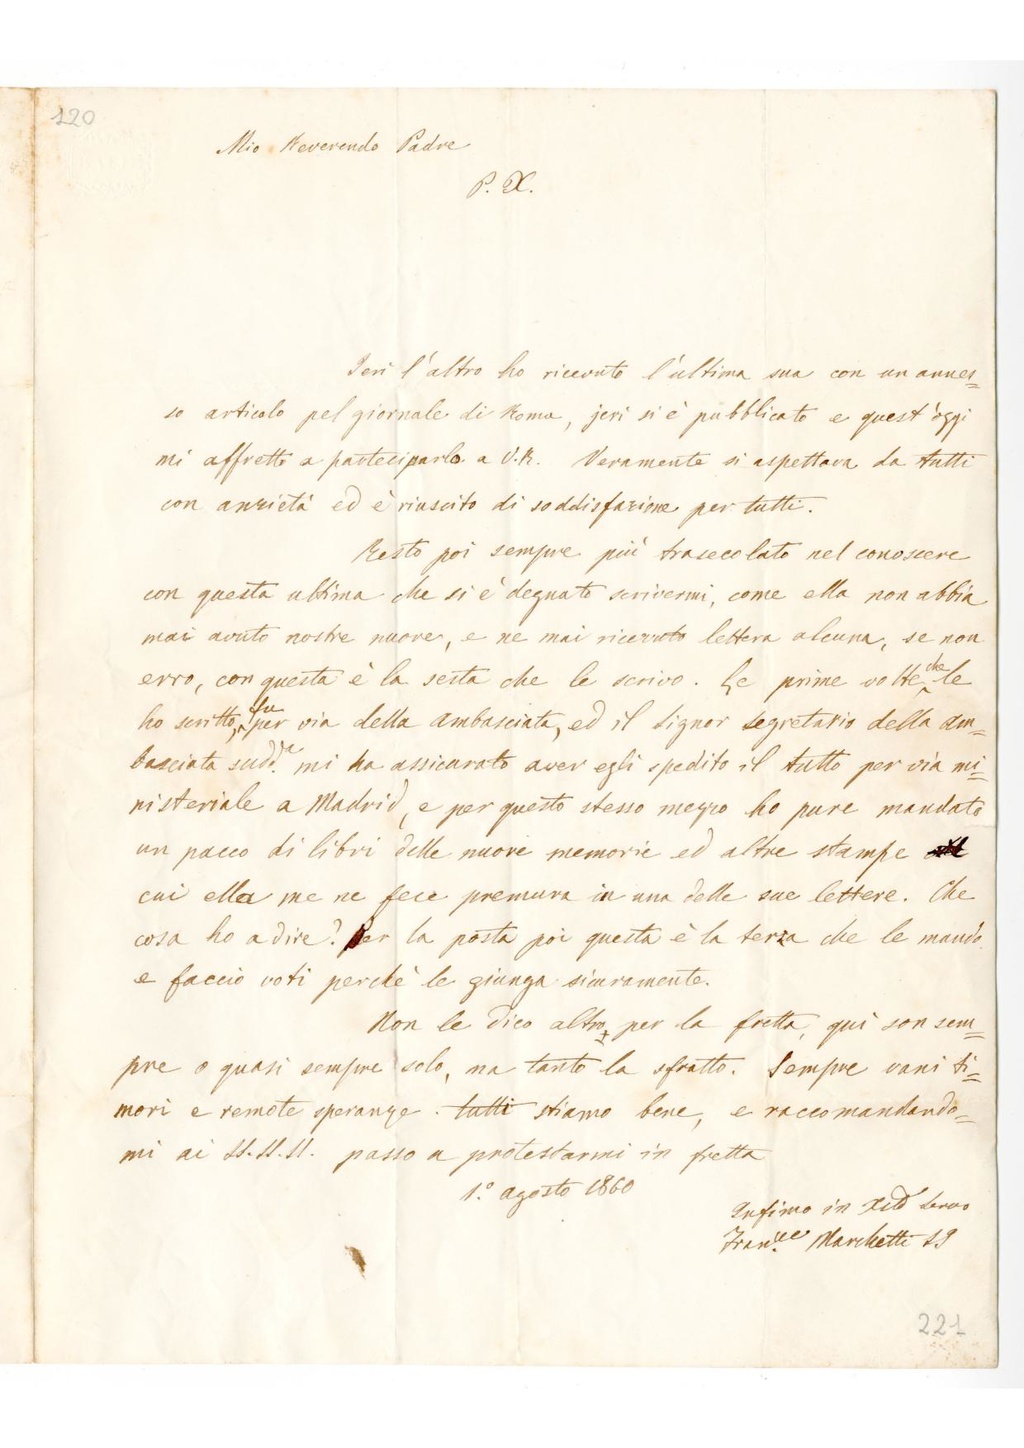 120
Mio Reverendo Padre
P. X.
Jeri l'altro ho ricevuto l'ultima sua con un annes=
so articolo pel giornale di Roma, jeri si è pubblicato e quest'oggi
mi affretto a parteciparlo a V.R. Veramente si aspettava da tutti
con anzietà ed è riuscito di soddisfazione per tutti.
Resto poi sempre più trasecolato nel conoscere
con questa ultima che si è degnato scrivermi, come ella non abbia
mai avuto nostre nuove, e ne mai ricevuto lettera alcuna, se non
erro, con questa è la sesta che le scrivo. Le prime volte che le
ho scritto, fu per via della Ambasciata, ed il Signor Segretario della Am=
basciata sudd.a mi ha assicurato aver egli spedito il tutto per via mi=
nisteriale a Madrid, e per questo stesso mezzo ho pure mandato
un pacco di libri delle nuove memorie ed altre stampe
cui ella me ne fece premura in una delle sue lettere. Che
cosa ho a dire? Per la posta poi questa è la terza che le mando
e faccio voti perchè le giunga sicuramente.
Non le dico altro per la fretta, qui son sem=
pre o quasi sempre solo, ma tanto la sfratto. Sempre vani ti=
mori e remote speranze. tutti stiamo bene, e raccomandando=
mi ai SS.SS.SS. passo a protestarmi in fretta
1.o agosto 1860
Infimo in Xto Servo
Fran.co Marchetti SJ
221